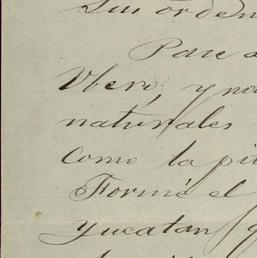 Sin orden
Pase a
Ubero, y no
naturales
como la pi
Formé el
Yucatan